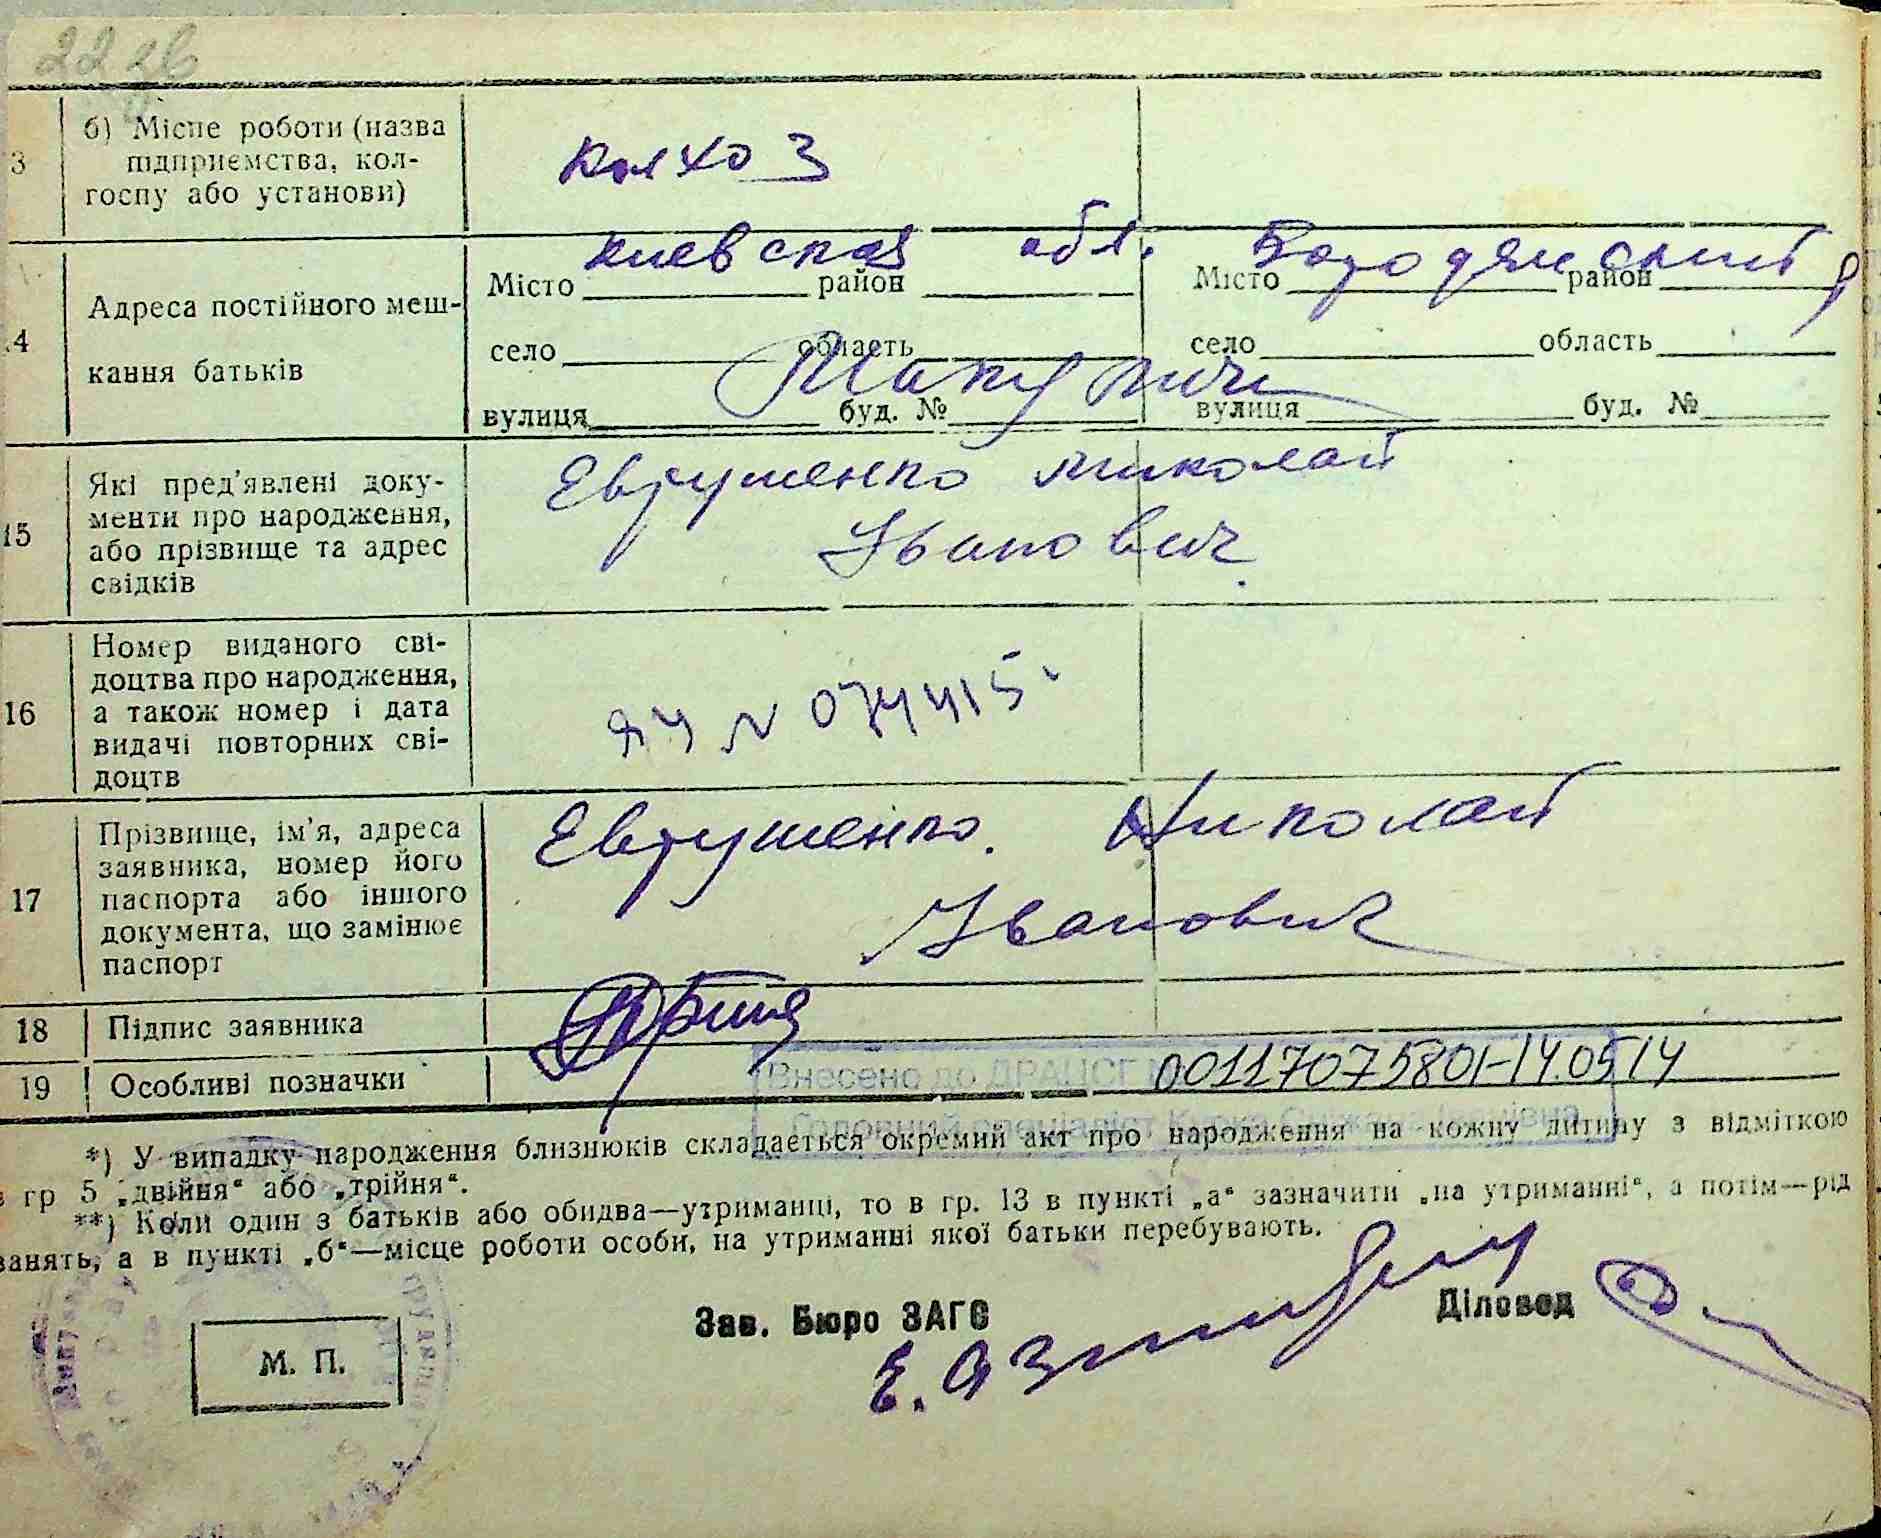 22 зв
3 б) Місце роботи (назва
підприємства, кол-
госпу або установи)
колхоз
14 Адреса постійного меш-
кання батьків
киевская обл. Бородянский р
Місто район Місто район
село область село область
Макуличи
вулиця буд. № вулиця буд. №
15 Які пред'явлені доку-
менти про народження,
або прізвище та адрес
свідків
Евтушенко Николай
Иванович
16 Номер виданого сві-
доцтва про народження,
а також номер і дата
видачі повторних сві-
доцтв
ЯЧ № 074415
17 Прізвище, ім'я, адреса
заявника, номер його
паспорта або іншого
документа, що замінює
паспорт
Евтушенко. Николай
Иванович
18 Підпис заявника
19 Особливі позначки
Внесено до ДРАЦСГ 00117075801-14.05.14
Головний спеціаліст
*) У випадку народження близнюків складається окремий акт про народження на кожну дитину з відміткою
в гр 5 „двійня“ або „трійня“.
**) Коли один з батьків або обидва—утриманці, то в гр. 13 в пункті „а“ зазначити „на утриманні“, а потім—рід
занять, а в пункті „б“—місце роботи особи, на утриманні якої батьки перебувають.
Зав. Бюро ЗАГС
Діловод
М. П.